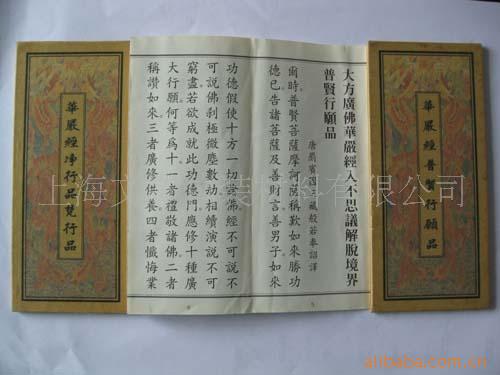 華嚴經普賢行願品
大方廣佛華嚴經入不思議解脫境界
普賢行願品
唐罽賓國三藏般若奉詔譯
爾時普賢菩薩摩訶薩稱歎如來勝功
德已告諸菩薩及善財言善男子如來
功德假使十方一切諸佛經不可說不
可說佛剎極微塵數劫相續演說不可
窮盡若欲成就此功德門應修十種廣
大行願何等為十一者禮敬諸佛二者
稱讚如來三者廣修供養四者懺悔業
華嚴經淨行品梵行品
上海文 有限公司
alibaba.com.cn